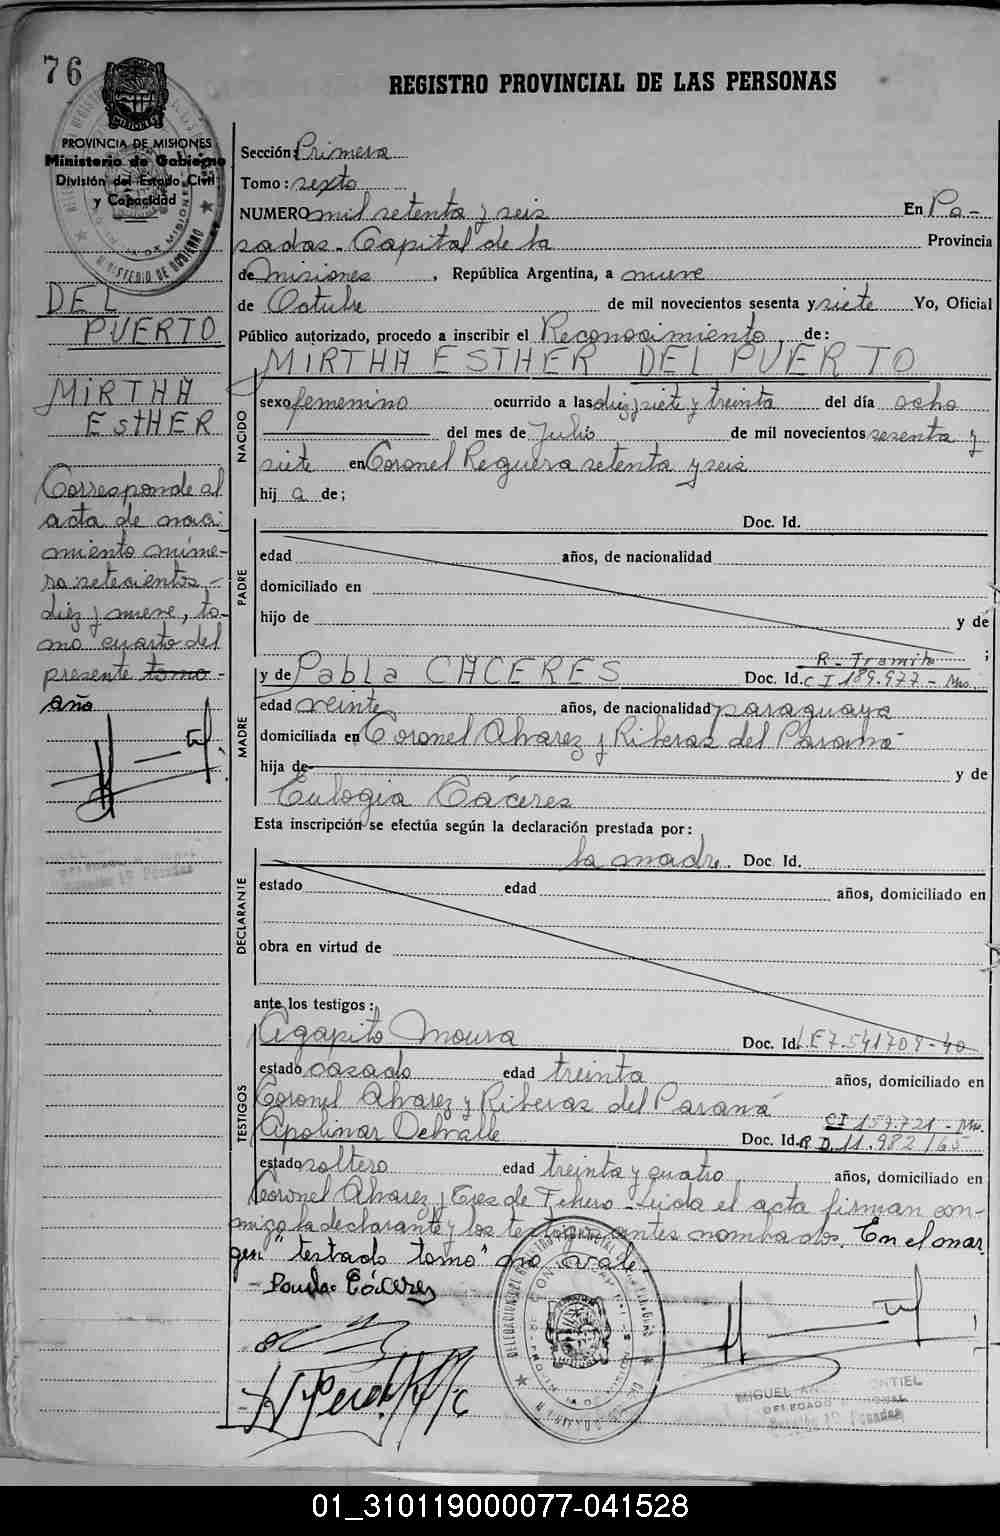 76
REGISTRO PROVINCIAL DE LAS PERSONAS
MISIONES
PROVINCIA DE MISIONES
Ministerio de Gobierno
División del Estado Civil
y Capacidad
MINISTERIO DE GOBIERNO
DEL
PUERTO
MIRTHA
ESTHER
Corresponde al
acta de naci-
miento núme-
ro setecientos
diez y nueve, to-
mo cuarto del
presente tomo
año
Sección: Primera
Tomo: sexto
NUMERO mil setenta y seis En Po-
sadas - Capital de la Provincia
de Misiones, República Argentina, a nueve
de Octubre de mil novecientos sesenta y siete Yo, Oficial
Público autorizado, procedo a inscribir el Reconocimiento, de:
MIRTHA ESTHER DEL PUERTO
NACIDO
sexo femenino ocurrido a las diez siete y treinta del día ocho
del mes de Julio de mil novecientos sesenta y
siete en Coronel Reguera setenta y seis
hij a de;
PADRE
Doc. Id.
edad años, de nacionalidad
domiciliado en
hijo de y de
;
R - Tramite
y de Pabla CACERES Doc. Id. CI 189.977 - Mis.
MADRE
edad veinte años, de nacionalidad paraguaya
domiciliada en Coronel Alvarez y Riberas del Paraná
hija de y de
Eulogia Cáceres
Esta inscripción se efectúa según la declaración prestada por:
la madre. Doc. Id.
DECLARANTE
estado edad años, domiciliado en
obra en virtud de
ante los testigos:
TESTIGOS
Agapito Moura Doc. Id. L.E 7.541708-40
estado casado edad treinta años, domiciliado en
Coronel Alvarez y Riberas del Paraná
CI 159.721 - Mis.
Apolinar Delvalle Doc. Id. R D. 11.982/65
estado soltero edad treinta y cuatro años, domiciliado en
Coronel Alvarez y Tres de Febrero - Leida el acta firman con-
migo la declarante y los testigos antes nombrados. En el mar
gen: "testado tomo" no vale -
Paula Cáceres
MIGUEL MONTIEL
DELEGADO
Sección 1ª Posadas
01_310119000077-041528